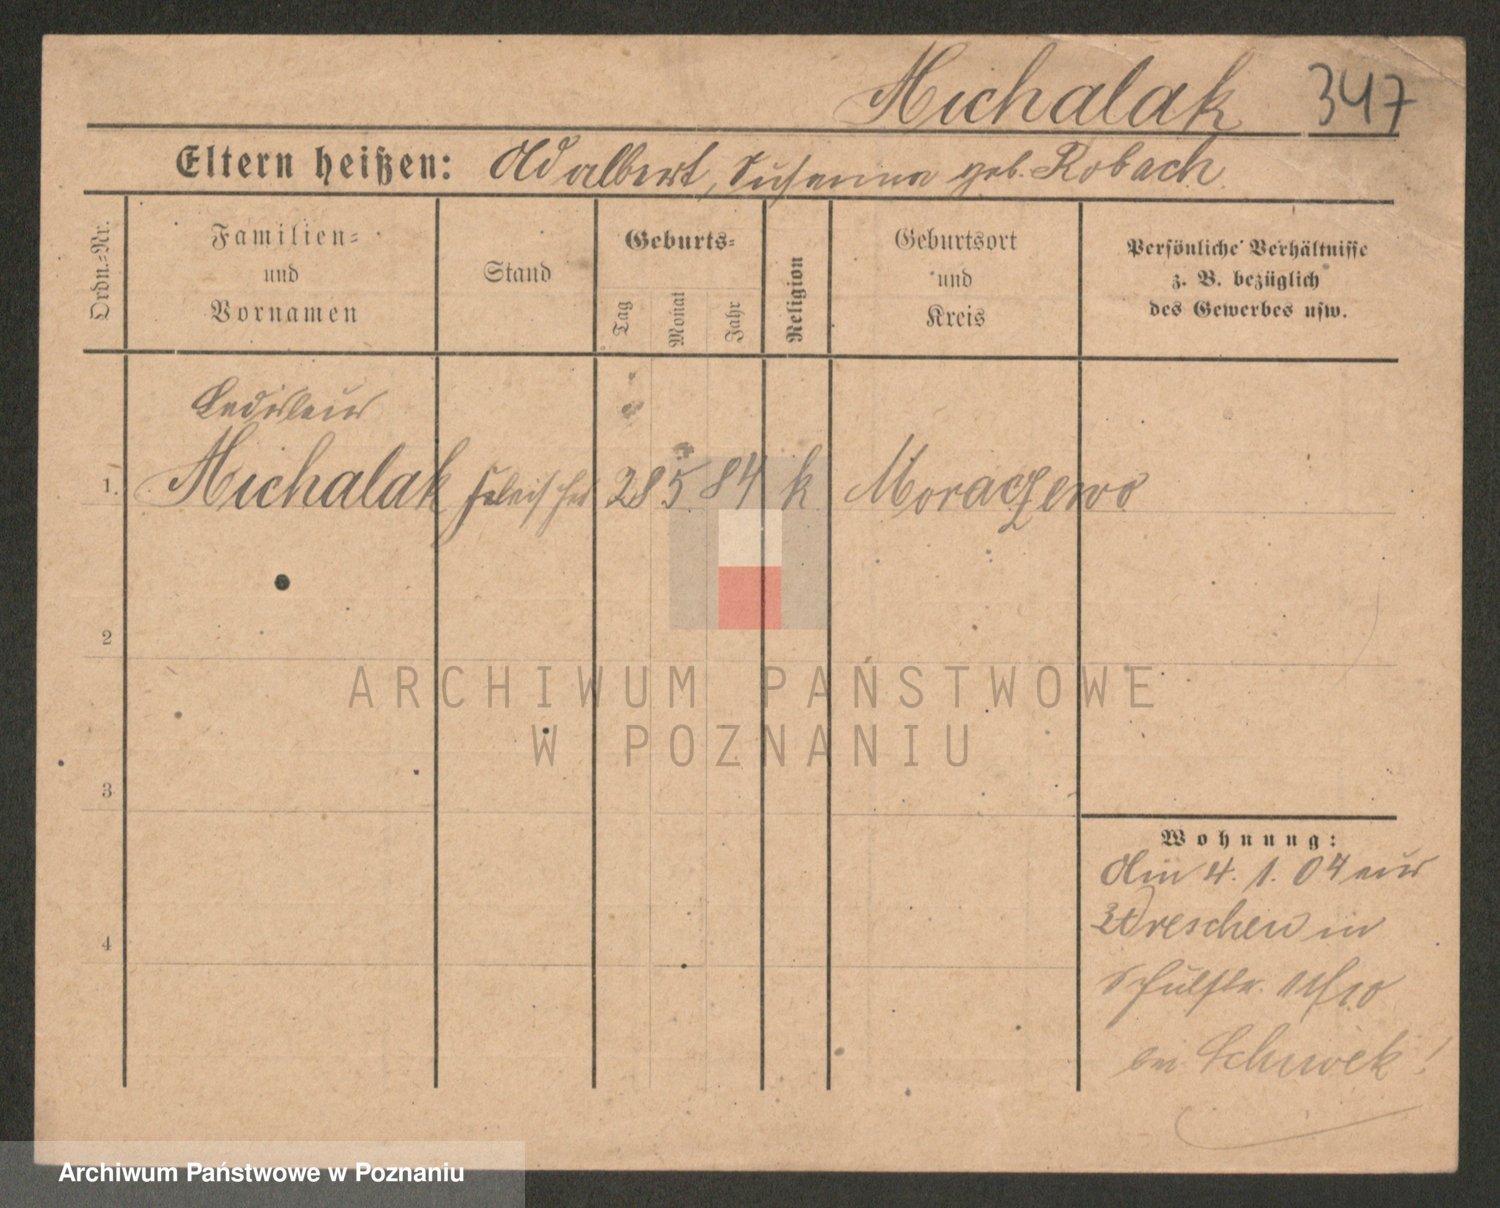 Michalak 347
Eltern heißen: Adalbert, Susanna geb. Robach
Ordn.-Nr.
Familien-
und
Vornamen
Stand
Geburts-
Tag
Monat
Jahr
Religion
Geburtsort
und
Kreis
Persönliche Verhältnisse
z. B. bezüglich
des Gewerbes usw.
Ladislaus
1. Michalak Fleischer 28 5 84 k Moraczewo
2
3
4
Wohnung:
Am 4. 1. 04 aus
Wreschen in
Schulstr.
bei !
ARCHIWUM PAŃSTWOWE
W POZNANIU
Archiwum Państwowe w Poznaniu